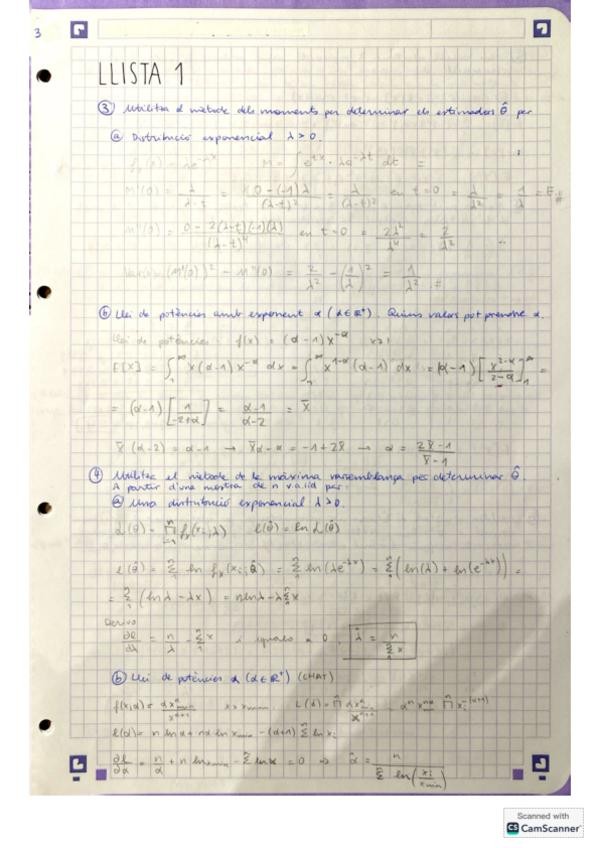 3
LLISTA 1
③ Utilitza el mètode dels moments per determinar els estimadors θ̂ per
ⓐ Distribució exponencial λ > 0.
M = ∫ e^{tx} · λe^{-λt} dt =
M'(0) = λ/(λ-t) = (0-(-1)λ)/(λ-t)² = λ/(λ-t)² en t=0 = λ/λ² = 1/λ = E.#
M''(0) = (0-2(λ-t)(-1)(λ))/(λ-t)⁴ en t=0 = 2λ²/λ⁴ = 2/λ²
(M'(0))² - M''(0) = 2/λ² - (1/λ)² = 1/λ² .#
ⓑ Llei de potències amb exponent α (α∈ℝ⁺). Quins valors pot prendre α.
Llei de potències: f(x) = (α-1)x^{-α} x>1
E[X] = ∫₁^∞ x(α-1)x^{-α} dx = ∫₁^∞ x^{1-α}(α-1) dx = (α-1)[x^{2-α}/(2-α)]₁^∞ =
= (α-1)[1/(-2+α)] = (α-1)/(α-2) = X̄
X̄(α-2) = α-1 → X̄α-α = -1+2X̄ → α = (2X̄-1)/(X̄-1)
④ Utilitza el mètode de la màxima versemblança per determinar θ̂.
A partir d'una mostra de n v.a.iid per:
ⓐ Una distribució exponencial λ>0.
L(θ) = ∏_{i=1}^n f_x(x_i;λ) ℓ(θ̂) = ln L(θ̂)
ℓ(θ̂) = Σ₁ⁿ ln f_x(x_i;θ̂) = Σ₁ⁿ ln(λe^{-λx}) = Σ₁ⁿ(ln(λ)+ln(e^{-λx})) =
= Σ₁ⁿ(lnλ-λx) = nlnλ-λΣ₁ⁿx
Derivo
∂ℓ/∂λ = n/λ - Σ₁ⁿx i igualo a 0. λ̂ = n/Σ₁ⁿx
ⓑ Llei de potències α (α∈ℝ⁺) (CHAT)
f(x;α) = αx^α_min/x^{α+1} x>x_min L(α) = ∏ⁿ αx^α_min/x^{α+1} = αⁿ x^{nα}_min ∏ⁿ x_i^{-(α+1)}
ℓ(α) = n lnα + nα ln x_min - (α+1) Σⁿ ln x_i
∂ℓ/∂α = n/α + n ln x_min - Σⁿ ln x = 0 ⇒ α̂ = n/Σⁿ ln(x_i/x_min)
Scanned with
CS CamScanner